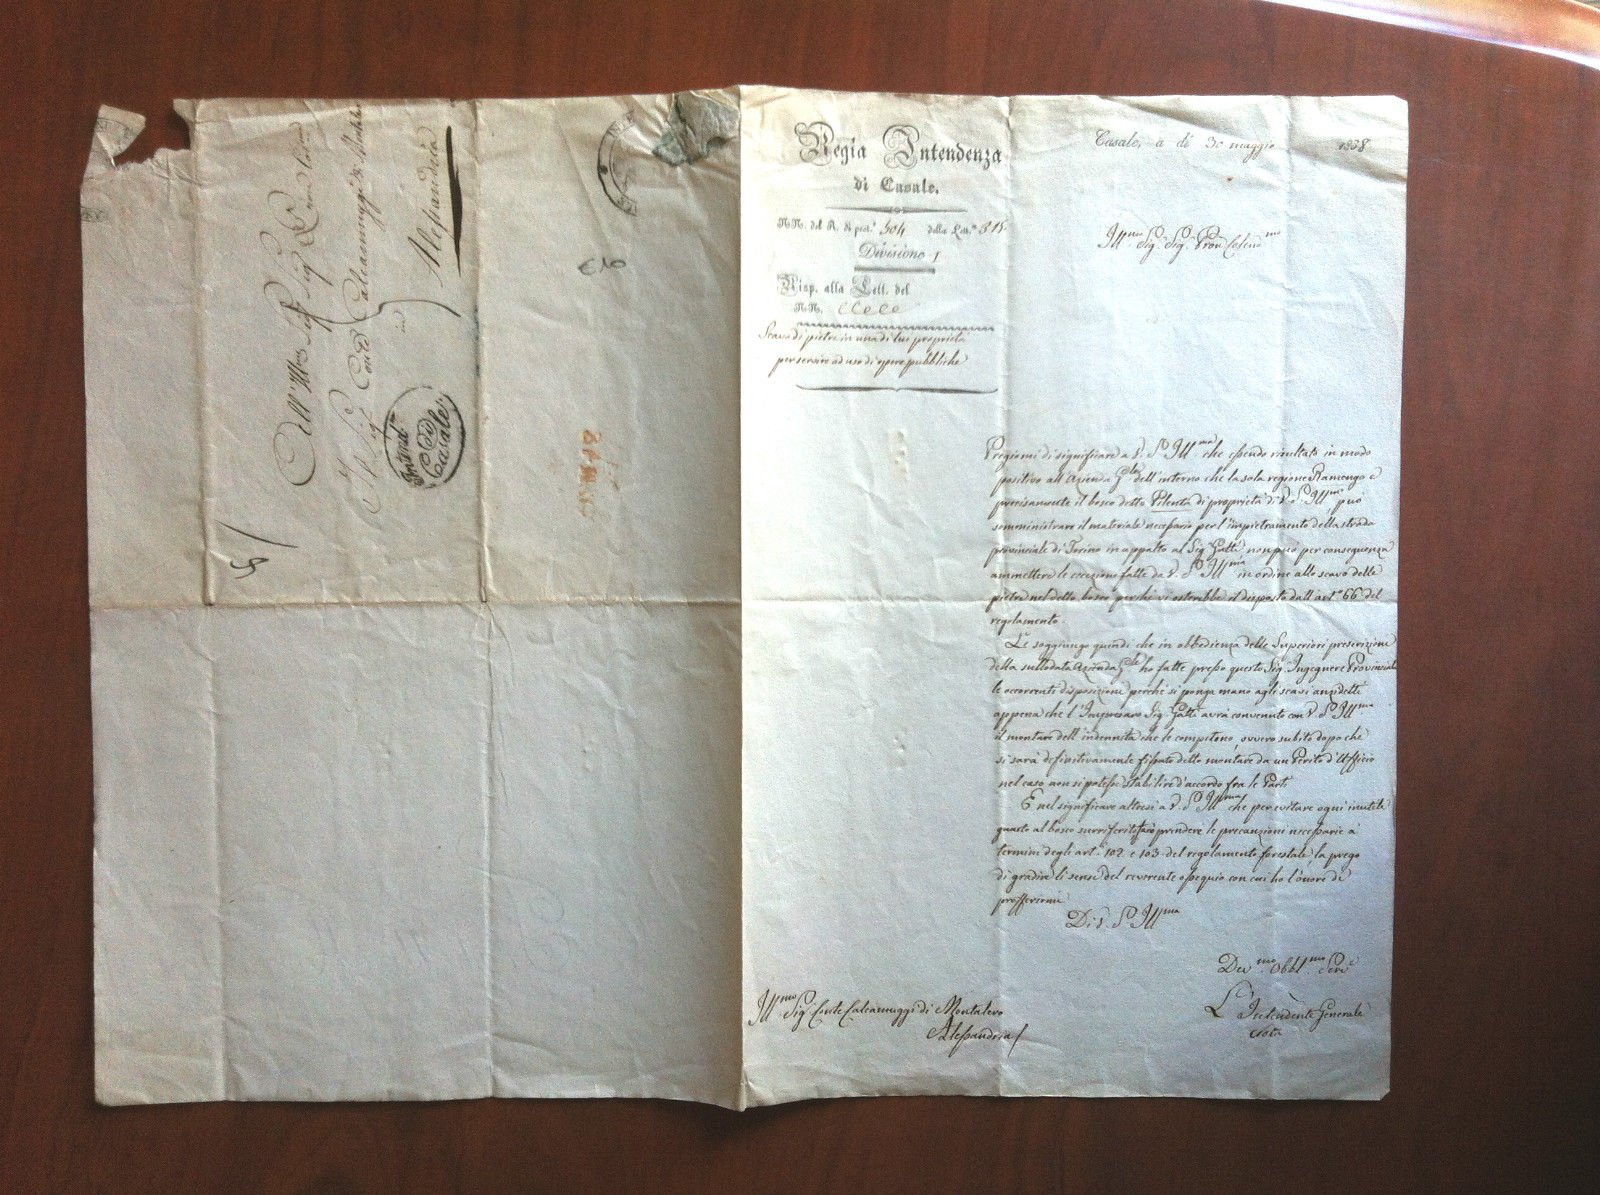 Regia Intendenza
di Casale.
NN. del R. di prot.º 504 della Lett.ª 315
Divisione 1
Risp. alla Lett. del
NN.
Scavo di pietre in una di lui proprietà
per servire ad uso di opere pubbliche
Casale, a dì 30 maggio 1838
Ill.mo Sig. Sig. Pron Colend.mo
Pregiomi di significare a V. S. Ill.ma che essendo risultato in modo
positivo all'Azienda G.le dell'interno che la sola regione Ramengo è
precisamente il bosco detto Pilenta di proprietà di V. S. Ill.ma può
somministrare il materiale necessario per l'impietramento della strada
provinciale di Torino in appalto al Sig. Gatti, non può per conseguenza
ammettere le eccezioni fatte da V. S. Ill.ma in ordine allo scavo delle
pietre nel detto bosco perché vi osterebbe il disposto dall'art.º 66 del
regolamento.
Le soggiungo quindi che in obbedienza delle Superiori prescrizioni
della sullodata Azienda G.le ho fatte presso questo Sig. Ingegnere Provinciale
le occorrenti disposizioni perché si ponga mano agli scavi anzidetti
appena che l'Impresaro Sig. Gatti avrà convenuto con V. S. Ill.ma
il montare dell'indennità che le competono, ovvero subito dopo che
si sarà definitivamente fissato detto montare da un Perito d'Ufficio
nel caso non si potesse stabilire d'accordo fra le Parti
E nel significare altresì a V. S. Ill.ma che per evitare ogni inutile
guasto al bosco surriferito farò prendere le precauzioni necessarie a
termine degli art. 102 e 103 del regolamento forestale la prego
di gradire li sensi del reverente ossequio con cui ho l'onore di
profferirmi
Di V. S. Ill.ma
Dev.mo Obbl.mo Serv.e
L'Intendente Generale
Ill.mo Sig. Conte Calcamuggi di Montalero
Alessandria
All'Ill.mo Sig. Sig. Pron Colend
Il Sig. Conte Calcamuggi di
in
Alessandria
Intend.
di
Casale
€10